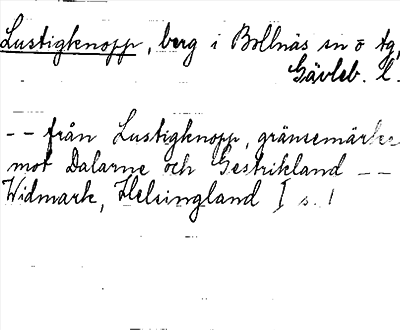 Lustigknopp, berg i Bollnäs sn o tg,
Gävleb. l.
-- från Lustigknopp, gränsemärke
mot Dalarne och Gestrikland --
Widmark, Helsingland I s. 1